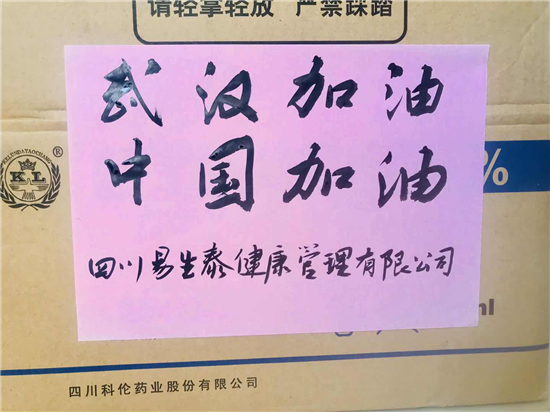 请轻拿轻放 严禁踩踏
武汉加油
中国加油
KELUNDAYAOCHANG
®
KL
%
四川易生泰健康管理有限公司
ml
四川科伦药业股份有限公司